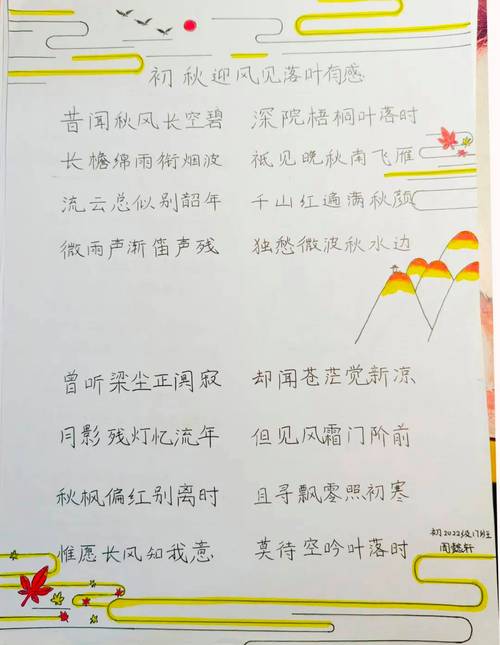 初秋迎风见落叶有感
昔闻秋风长空碧 深院梧桐叶落时
长檐绵雨衔烟波 祗见晚秋南飞雁
流云总似别韶年 千山红遍满秋颜
微雨声渐笛声残 独愁微波秋水边
曾听梁尘正阒寂 却闻苍茫觉新凉
月影残灯忆流年 但见风霜门阶前
秋枫偏红别离时 且寻飘零照初寒
惟愿长风知我意 莫待空吟叶落时
初2022级17班
周懿轩